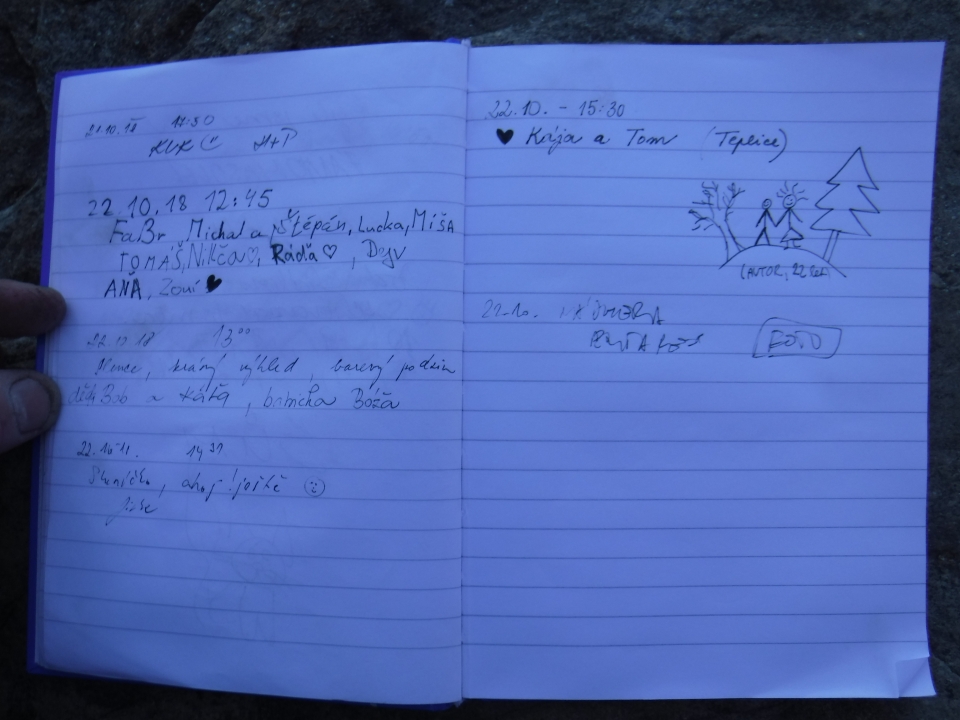 21.10.18 17:30
KUK H+P
22.10.18 12:45
FaBr Michal a Štěpán, Lucka, MÍŠA
TOMÁŠ, Nikča♡, Ráďa♡, Dejv
AŇA, Zoui ♥
22.10.18 13⁰⁰
Slunce, krásný výhled, barevný podzim
děda Bob a Káťa, babička Bóža
22. 14³¹
Sluníčko, ahoj! ještě ☺
22.10. - 15:30
♥ Kája a Tom (Teplice)
(AUTOR, 22 let
22.10.
FOTO